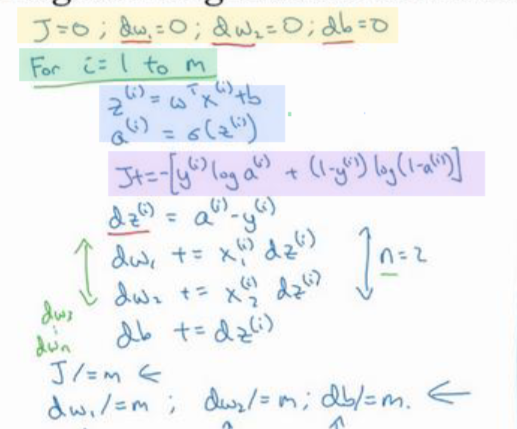 J=0 ; dw₁=0 ; dw₂=0 ; db=0
For i=1 to m
z⁽ⁱ⁾ = ωᵀx⁽ⁱ⁾+b
a⁽ⁱ⁾ = σ(z⁽ⁱ⁾)
J+=-[y⁽ⁱ⁾ log a⁽ⁱ⁾ + (1-y⁽ⁱ⁾) log(1-a⁽ⁱ⁾)]
dz⁽ⁱ⁾ = a⁽ⁱ⁾-y⁽ⁱ⁾
dw₁ += x₁⁽ⁱ⁾ dz⁽ⁱ⁾
dw₂ += x₂⁽ⁱ⁾ dz⁽ⁱ⁾
n=2
db += dz⁽ⁱ⁾
dw₃
⋮
dwn
J/=m ←
dw₁/=m ; dw₂/=m ; db/=m. ←